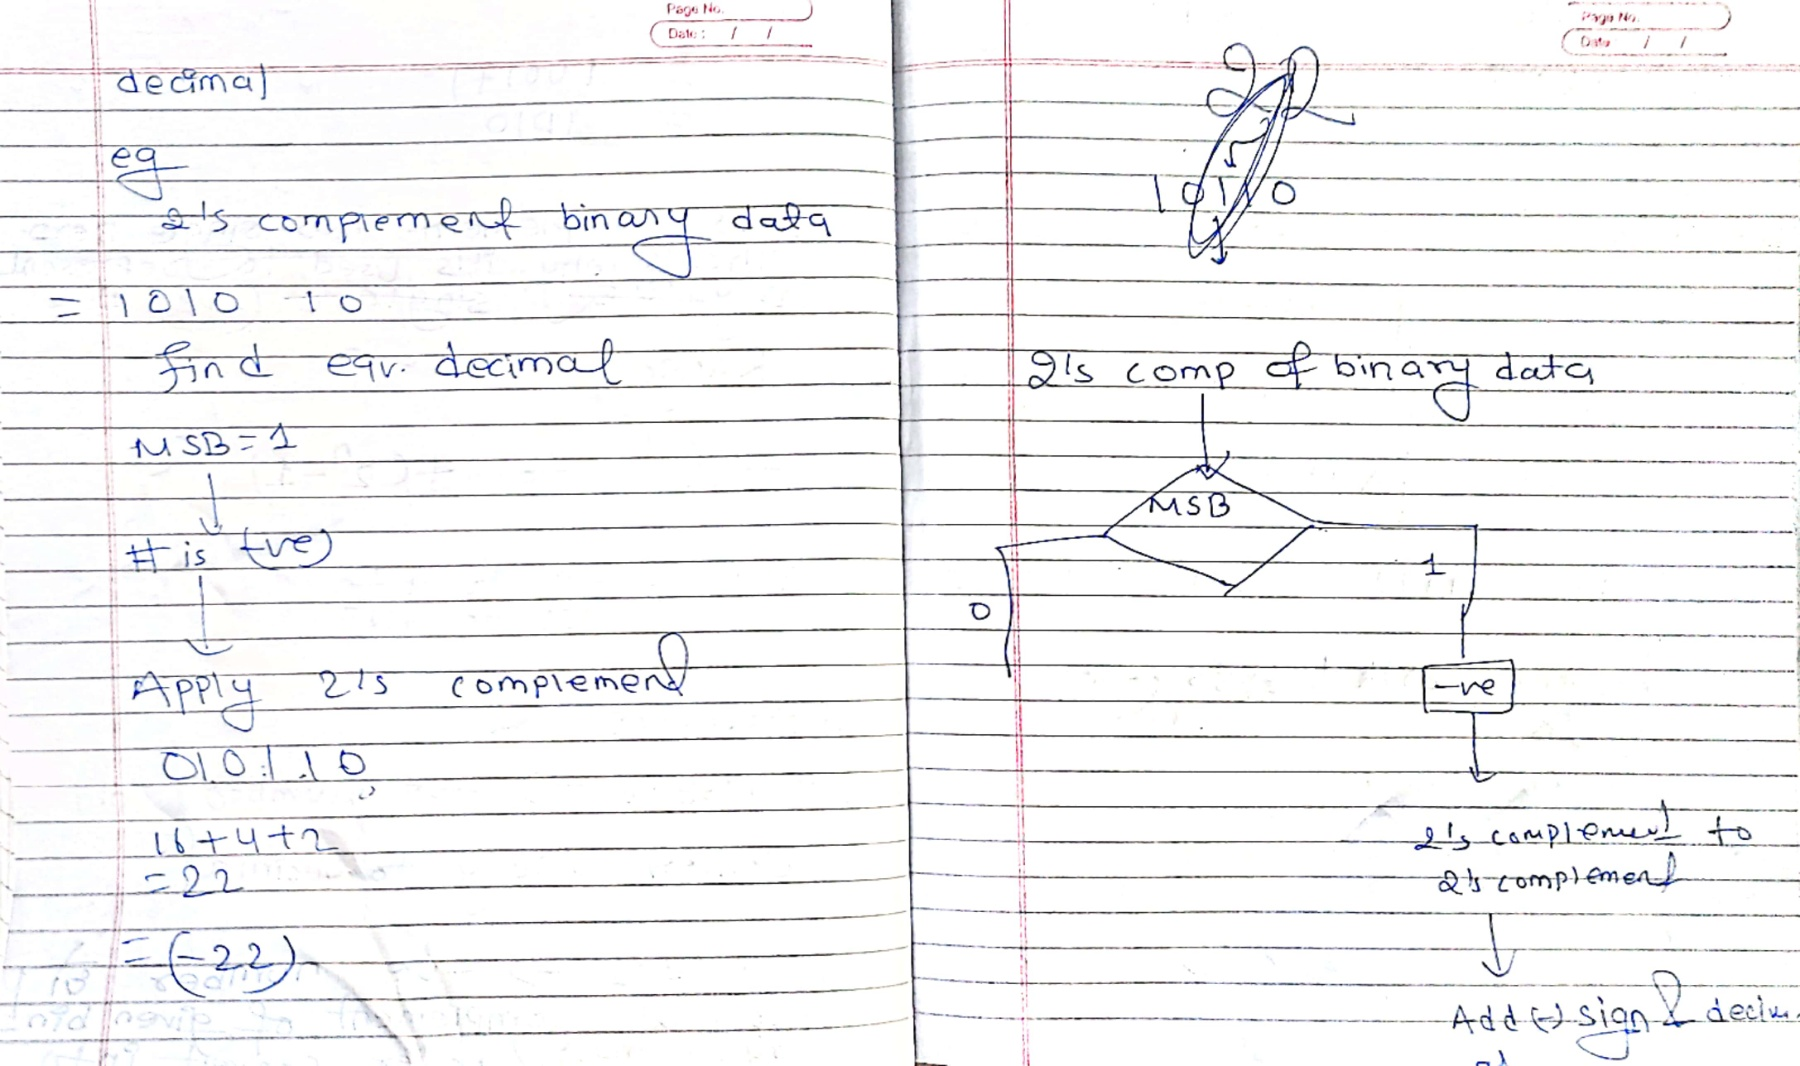 Page No.
Date: / /
decimal
eg
2's complement binary data
= 1010 10
find eqv. decimal
MSB = 1
# is (-ve)
Apply 2's complement
010110
16+4+2
=22
= (-22)
Page No.
Date / /
22
10110
2's comp of binary data
MSB
1
0
-ve
2's complement to
2's complement
Add (-) sign &